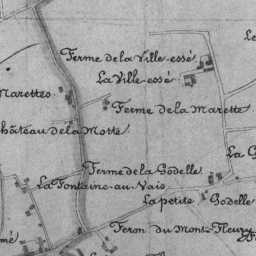 Le
Ferme de la Ville-essé
La Ville-essé
Marettes
Ferme de la Marette
Château de la Motte
La G
Ferme de la Godelle
La Fontaine-au-Vais
La petite Godelle
Ferm du Mont-Fleury
mé